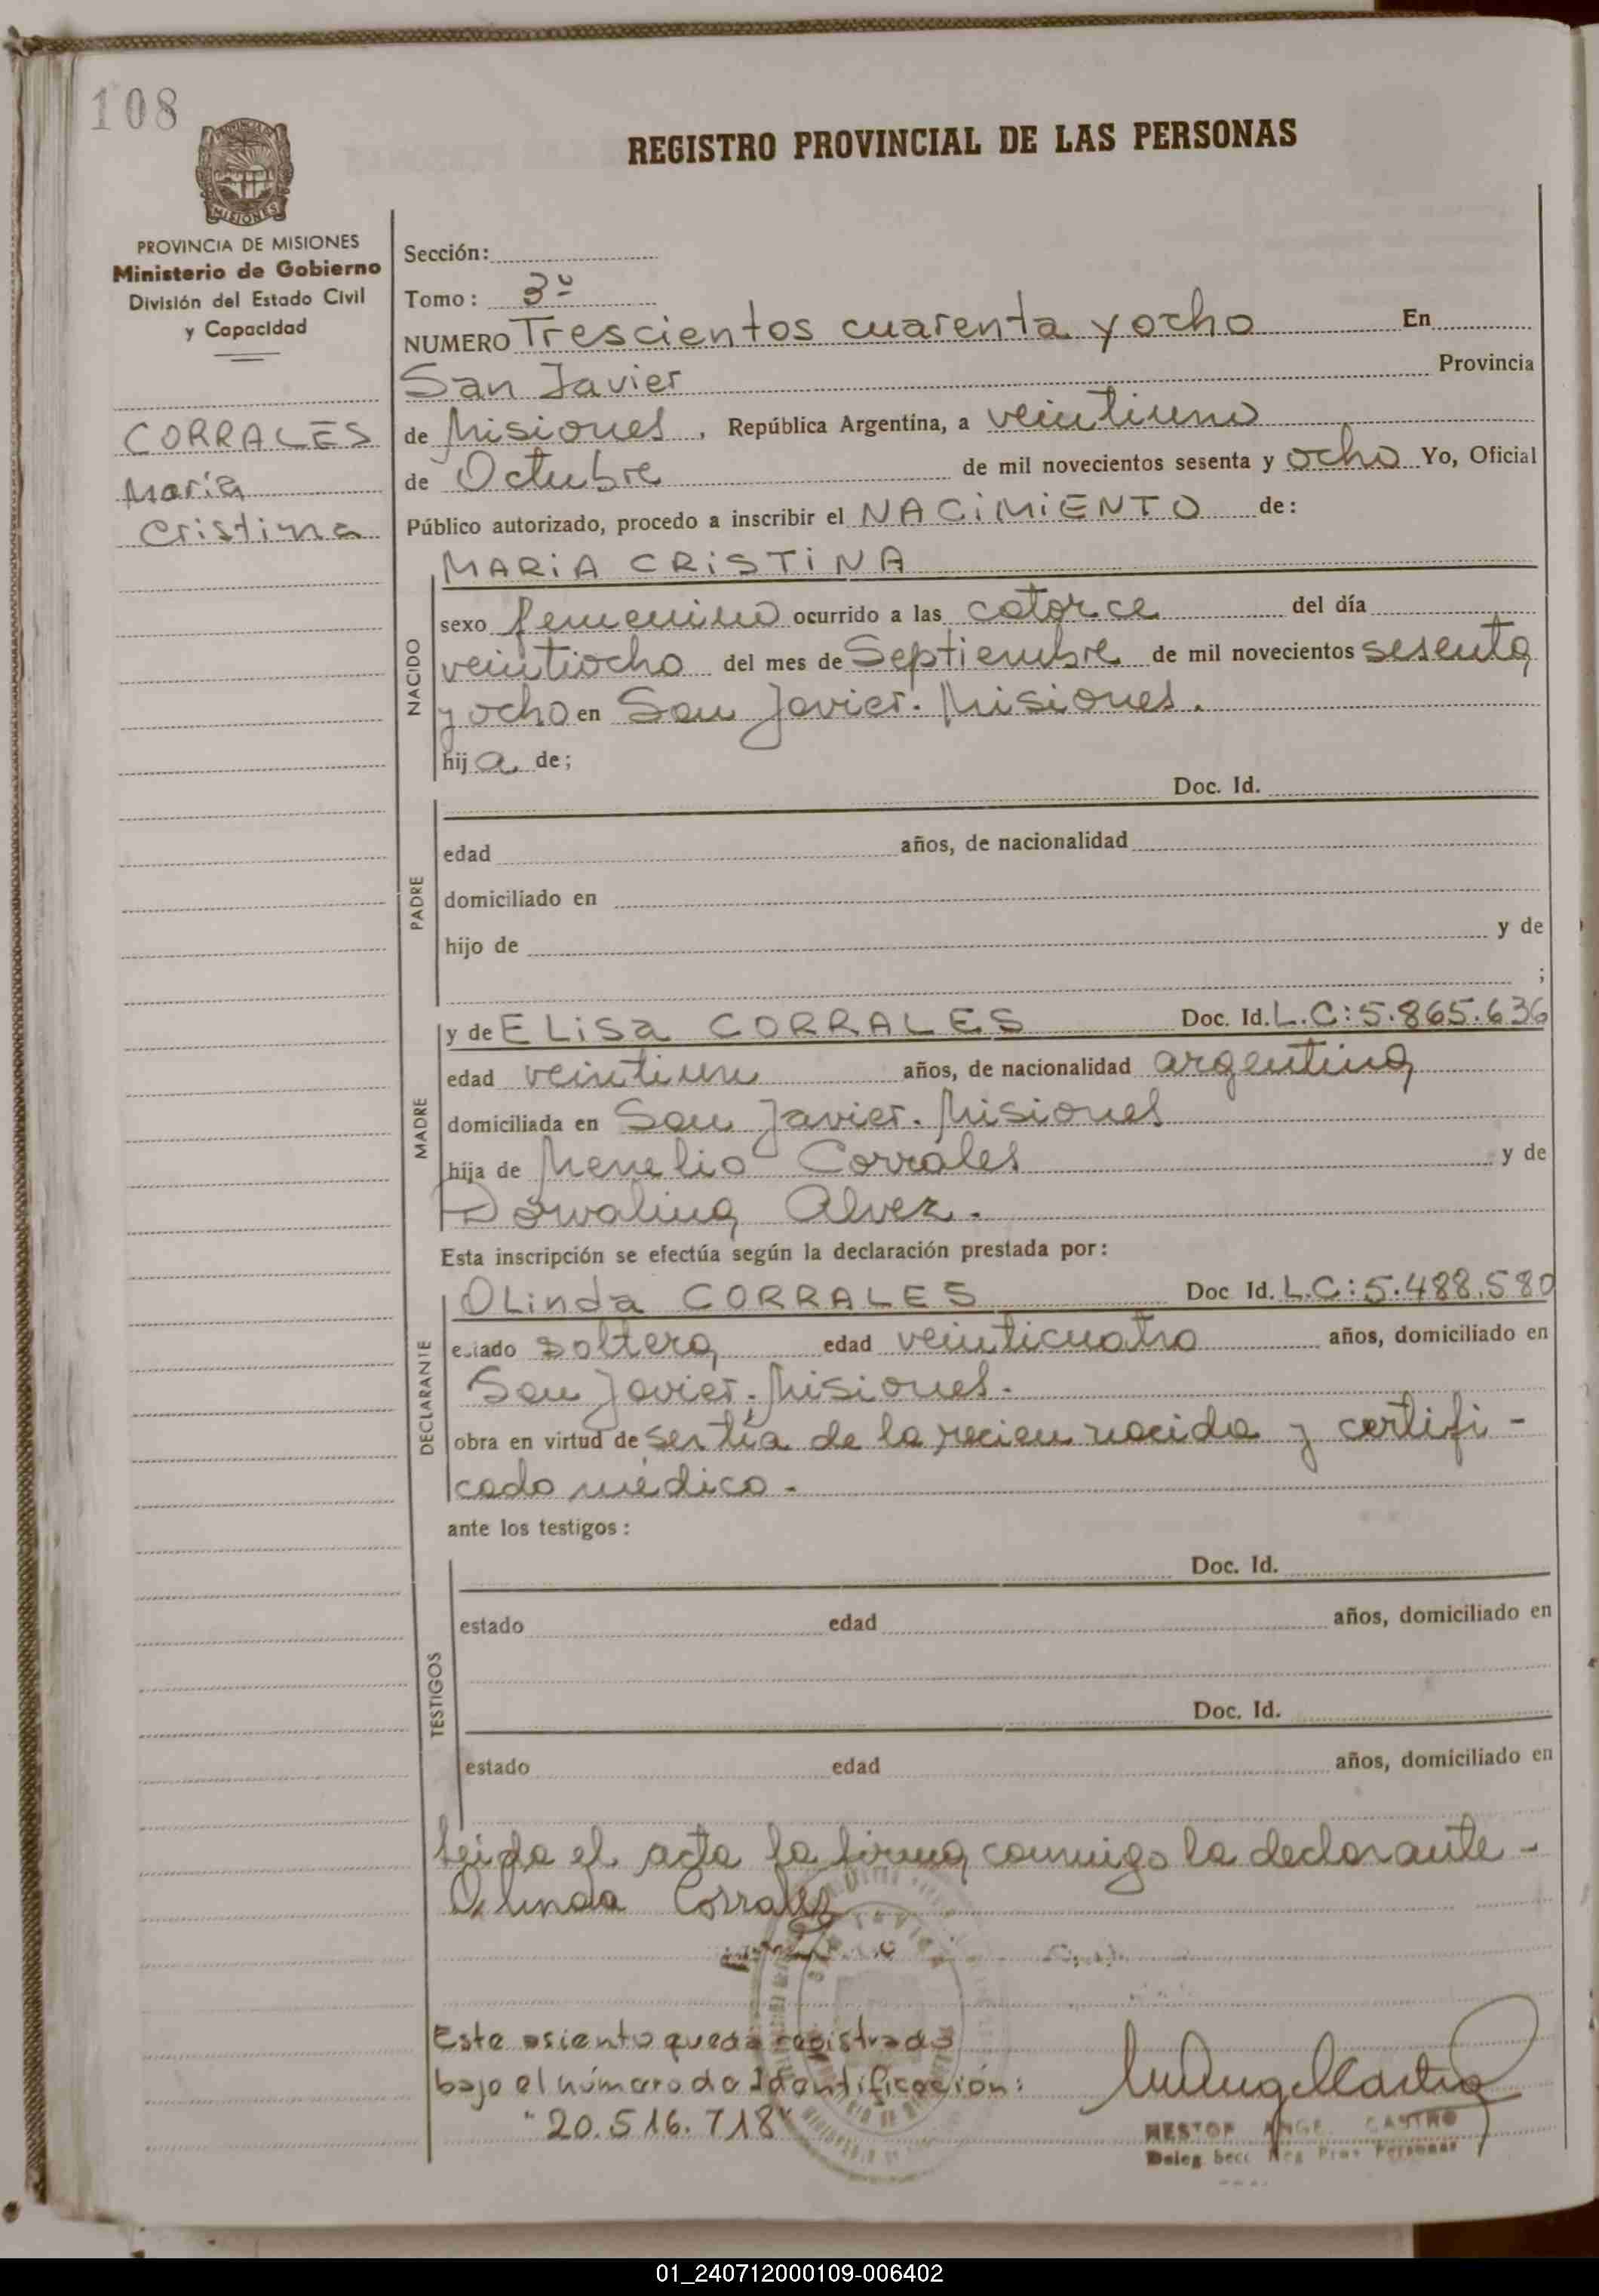 108
REGISTRO PROVINCIAL DE LAS PERSONAS
PROVINCIA DE MISIONES
Ministerio de Gobierno
División del Estado Civil
y Capacidad
CORRALES
María
Cristina
Sección:
Tomo: 3º
NUMERO Trescientos cuarenta y ocho En
San Javier Provincia
de Misiones, República Argentina, a veintiuno
de Octubre de mil novecientos sesenta y ocho Yo, Oficial
Público autorizado, procedo a inscribir el NACIMIENTO de:
NACIDO
MARIA CRISTINA
sexo femenino ocurrido a las catorce del día
veintiocho del mes de Septiembre de mil novecientos sesenta
y ocho en San Javier. Misiones.
hija de;
PADRE
Doc. Id.
edad años, de nacionalidad
domiciliado en
hijo de y de
;
MADRE
y de ELISA CORRALES Doc. Id. L.C: 5.865.636
edad veintiun años, de nacionalidad argentina
domiciliada en San Javier. Misiones
hija de Menelio Corrales y de
Dorvalina Alvez.
Esta inscripción se efectúa según la declaración prestada por:
DECLARANTE
OLinda CORRALES Doc Id. L.C: 5.488.580
estado soltera edad veinticuatro años, domiciliado en
San Javier. Misiones.
obra en virtud de ser tía de la recien nacida y certifi-
cado médico.
ante los testigos:
TESTIGOS
Doc. Id.
estado edad años, domiciliado en
Doc. Id.
estado edad años, domiciliado en
Leida el acta la firma conmigo la declarante-
Olinda Corrales
Este asiento queda registrado
bajo el número de Identificación:
"20.516.718"
NESTOR ANGEL CASTRO
Deleg Secc Reg Prov Personas
01_240712000109-006402